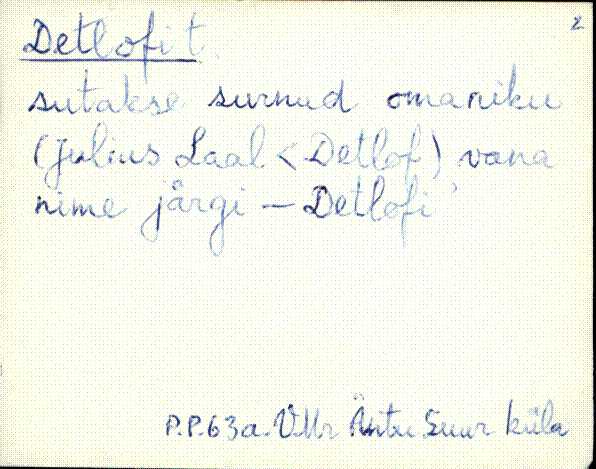 2
Detlofi t.
sutakse surnud omaniku
(Julius Laal < Detlof) vana
nime järgi – Detlofi'
P.P.63a. VMr Äntu Suur küla